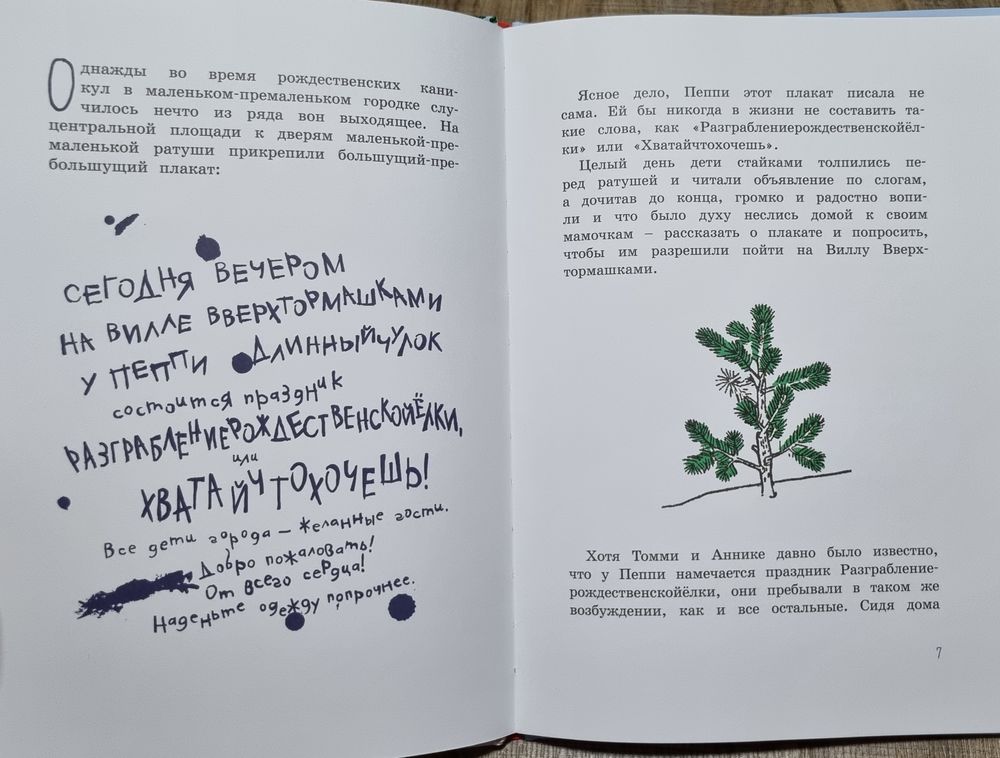 Однажды во время рождественских кани-
кул в маленьком-премаленьком городке слу-
чилось нечто из ряда вон выходящее. На
центральной площади к дверям маленькой-пре-
маленькой ратуши прикрепили большущий-пре-
большущий плакат:
СЕГОДНЯ ВЕЧЕРОМ
НА ВИЛЛЕ ВВЕРХТОРМАШКАМИ
У ПЕППИ ДЛИННЫЙЧУЛОК
состоится праздник
РАЗГРАБЛЕНИЕРОЖДЕСТВЕНСКОЙЁЛКИ,
или
ХВАТАЙЧТОХОЧЕШЬ!
Все дети города – желанные гости.
Добро пожаловать!
От всего сердца!
Наденьте одежду попрочнее.
Ясное дело, Пеппи этот плакат писала не
сама. Ей бы никогда в жизни не составить та-
кие слова, как «Разграблениерождественскойёл-
ки» или «Хватайчтохочешь».
Целый день дети стайками толпились пе-
ред ратушей и читали объявление по слогам,
а дочитав до конца, громко и радостно вопи-
ли и что было духу неслись домой к своим
мамочкам – рассказать о плакате и попросить,
чтобы им разрешили пойти на Виллу Вверх-
тормашками.
Хотя Томми и Аннике давно было известно,
что у Пеппи намечается праздник Разграбление-
рождественскойёлки, они пребывали в таком же
возбуждении, как и все остальные. Сидя дома
7